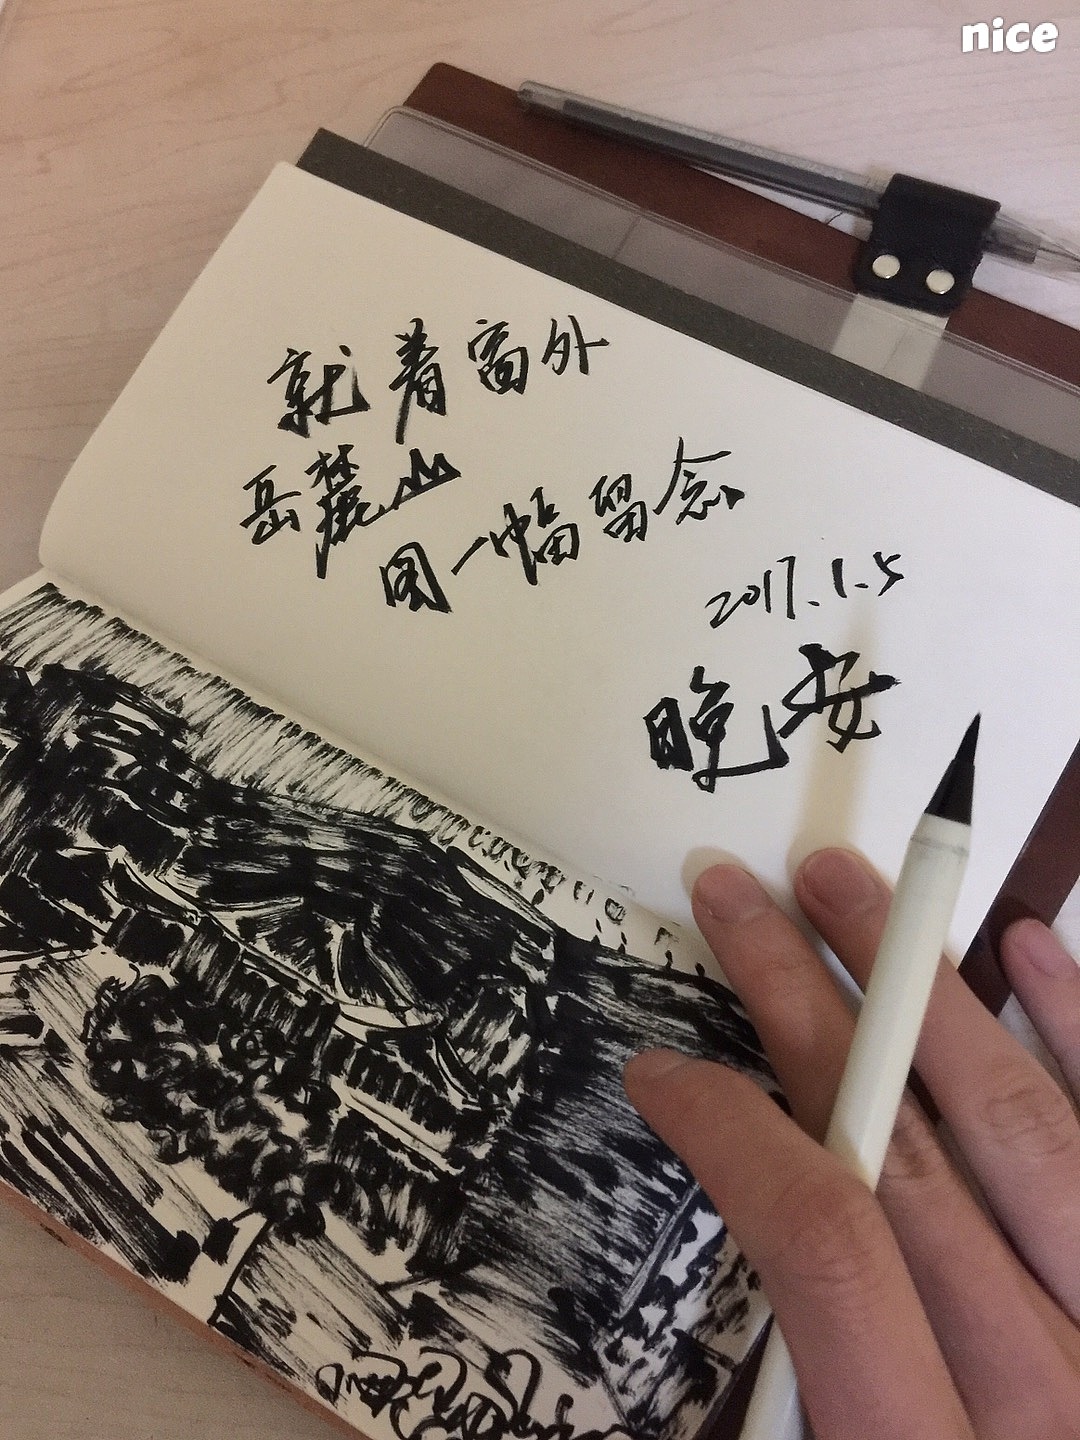 nice
就着窗外
岳麓山
图一幅留念
2017.1.5
晚安